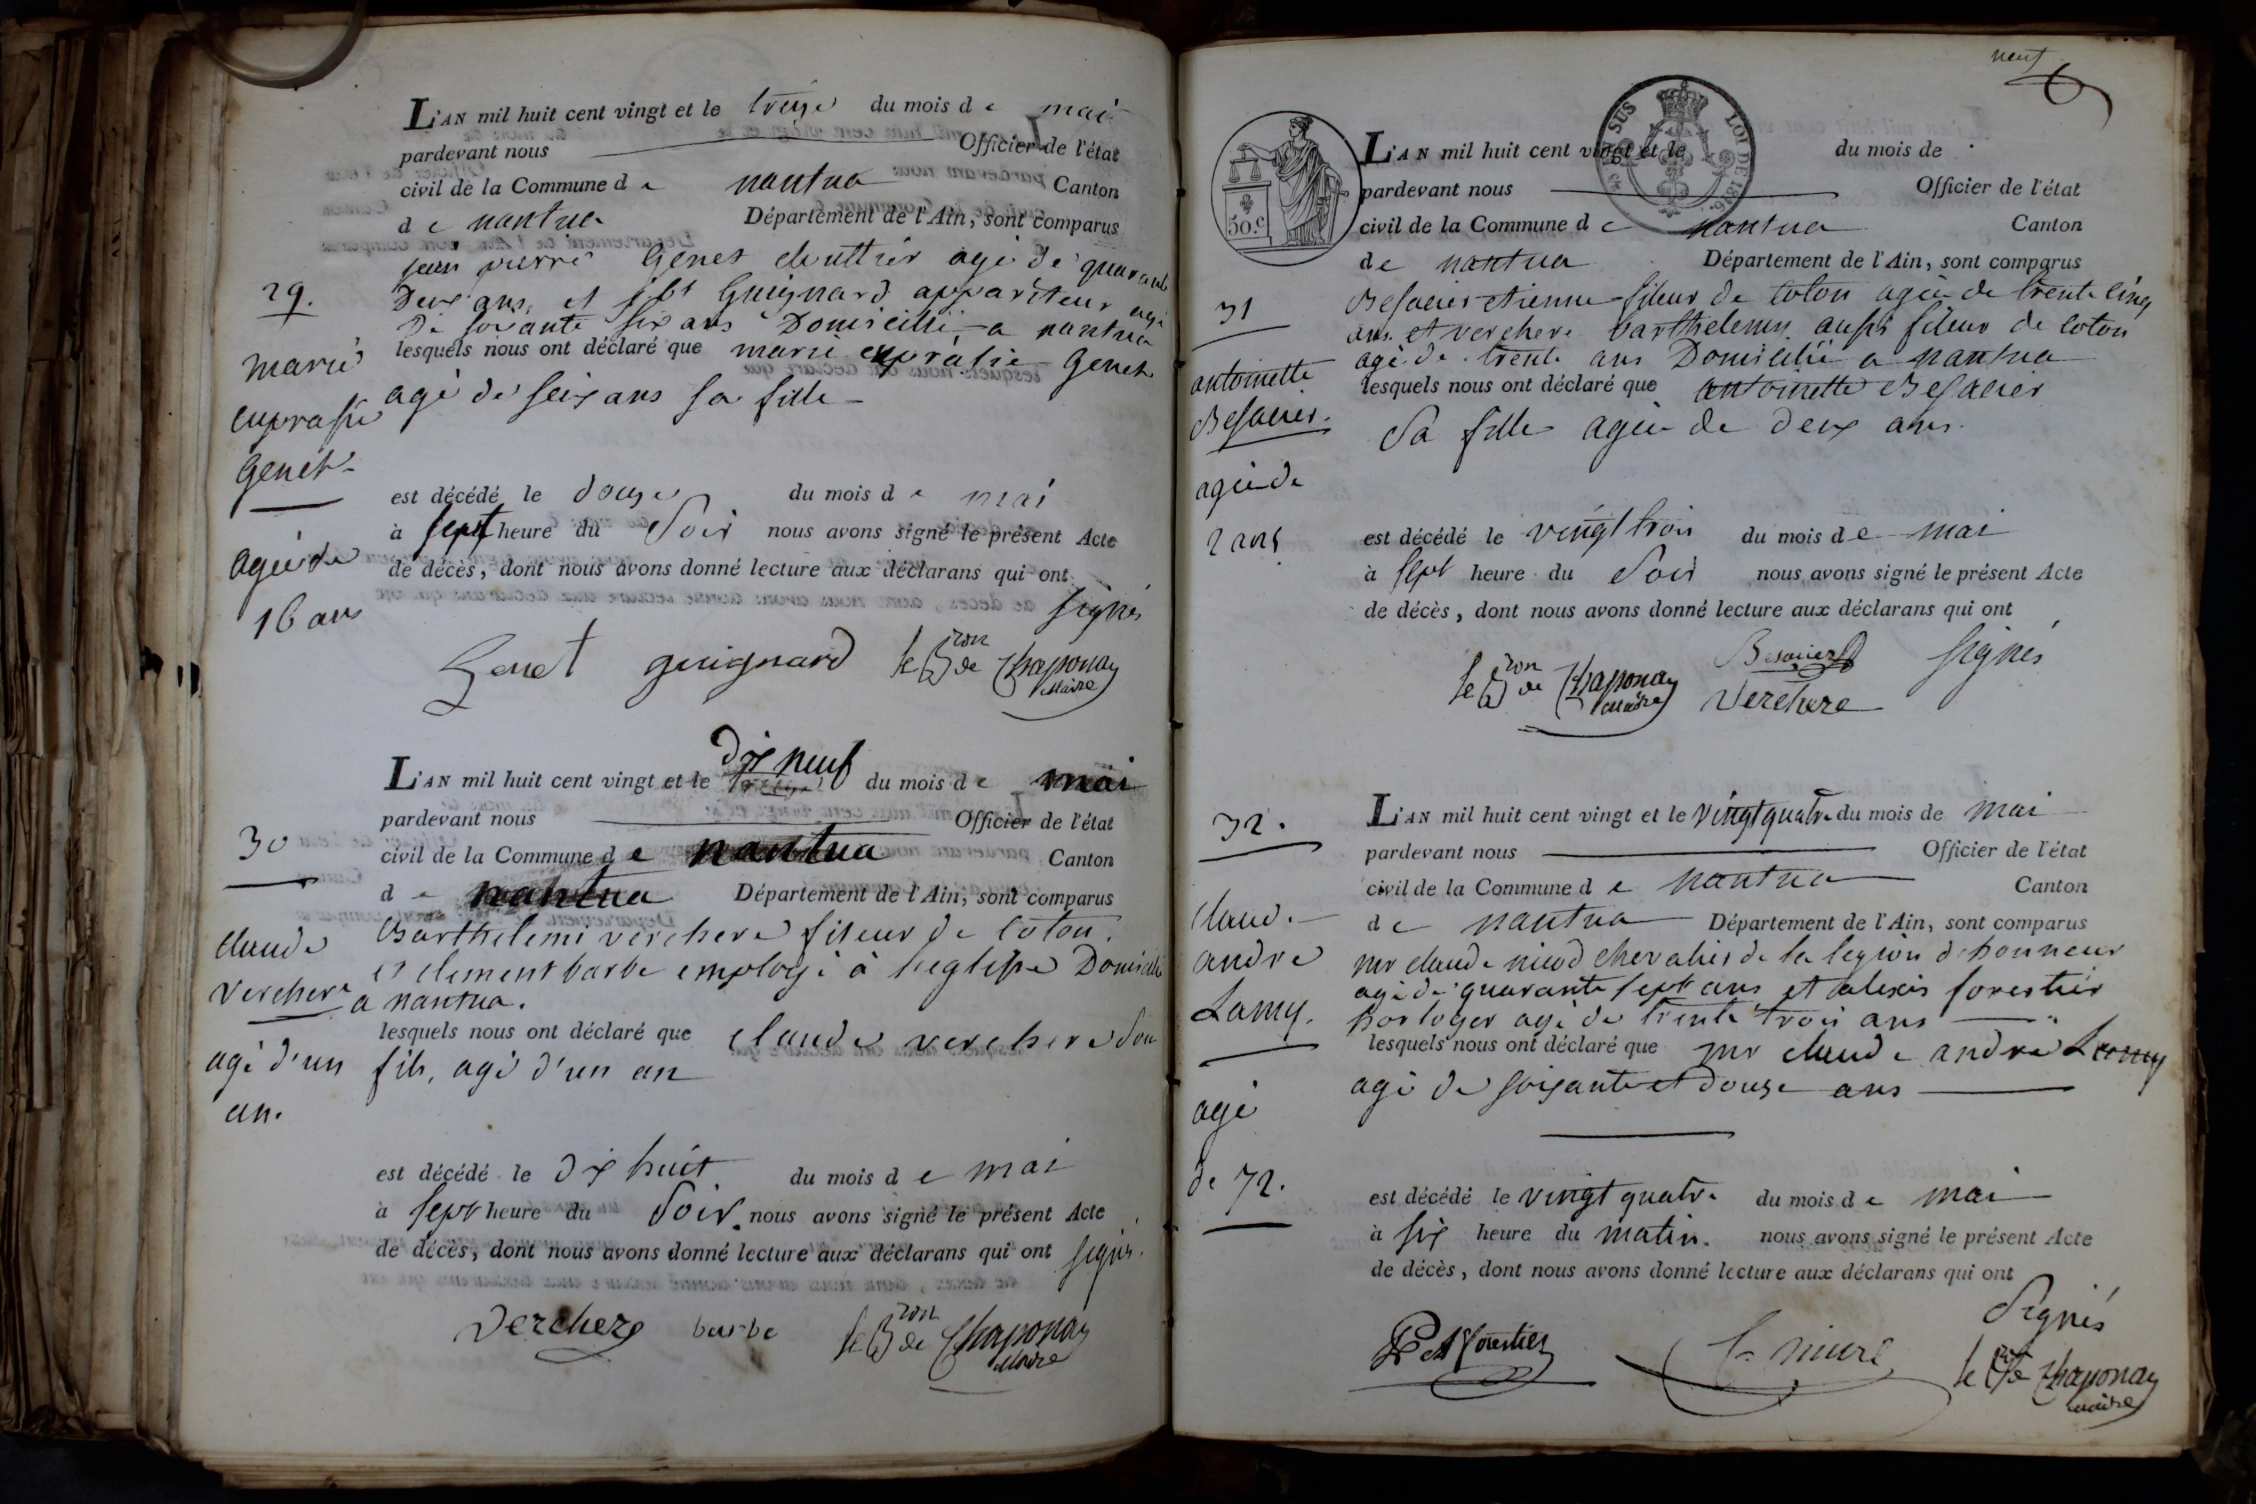 L'AN mil huit cent vingt et le treize du mois de mai
pardevant nous Officier de l'état
civil de la Commune de nantua Canton
de nantua Département de l'Ain, sont comparus
jean pierre Genet agé de quarante
Deux ans, et Guignard appariteur agé
De soixante six ans Domicillié a nantua
lesquels nous ont déclaré que marie euprasie Genet
agé de seix ans sa fille
29.
marie
euprasie
Genet
agée de
16 ans
est décédé le douze du mois de mai
à sept heure du Soir nous avons signé le présent Acte
de décès, dont nous avons donné lecture aux déclarans qui ont
signés
Genet guignard le Bron de Chaponay
Maire
L'AN mil huit cent vingt et le dix neuf du mois de mai
pardevant nous Officier de l'état
civil de la Commune de nantua Canton
de nantua Département de l'Ain, sont comparus
Barthelemi verchere fileur de coton,
et clement barbe employé à l'eglise Domicilié
a nantua.
lesquels nous ont déclaré que claude verchere son
fils, agé d'un an
30
claude
verchere
agé d'un
an.
est décédé le dix huit du mois de mai
à sept heure du Soir. nous avons signé le présent Acte
de décès, dont nous avons donné lecture aux déclarans qui ont signés.
Verchere barbe le Bron de Chaponay
Maire
neuf
SUS
LOI DE 1816.
50.c
L'AN mil huit cent vingt et le du mois de
pardevant nous Officier de l'état
civil de la Commune de nantua Canton
de nantua Département de l'Ain, sont comparus
Besacier etienne fileur de coton agée de trente cinq
ans et verchere barthelemy aussi fileur de coton
agé de trente ans Domicilié a nantua
lesquels nous ont déclaré que antoinette Besacier
Sa fille agée de deux ans.
31
antoinette
Besacier.
agée de
2 ans
est décédé le vingt trois du mois de mai
à sept heure du Soir nous avons signé le présent Acte
de décès, dont nous avons donné lecture aux déclarans qui ont
signés
le Bron de Chaponay Besacier
Maire Verchere
L'AN mil huit cent vingt et le vingt quatre du mois de mai
pardevant nous Officier de l'état
civil de la Commune de nantua Canton
de nantua Département de l'Ain, sont comparus
mr claude nicod chevalier de la legion d'honneur
agé de quarante sept ans et alexis forestier
horloger agé de trente trois ans
lesquels nous ont déclaré que mr claude andre Lamy
agé de soixante et douze ans
32.
claud.
andre
Lamy.
agé
de 72.
est décédé le vingt quatre du mois de mai
à six heure du matin. nous avons signé le présent Acte
de décès, dont nous avons donné lecture aux déclarans qui ont
Signés
forestier
le Bron de Chaponay
maire